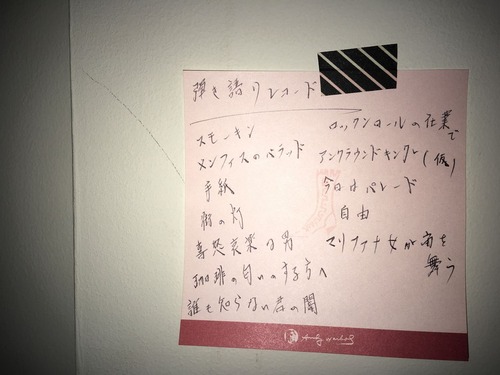 弾き語りレコード
スモーキン
メンフィスのバラッド
手紙
街の灯
喜怒哀楽の男
珈琲の匂いのする方へ
誰も知らない君の闇
ロックンロールの仕業で
アンクラウンドキング(仮)
今日はパレード
自由
マリファナ女が宙を
舞う
Andy Warhol